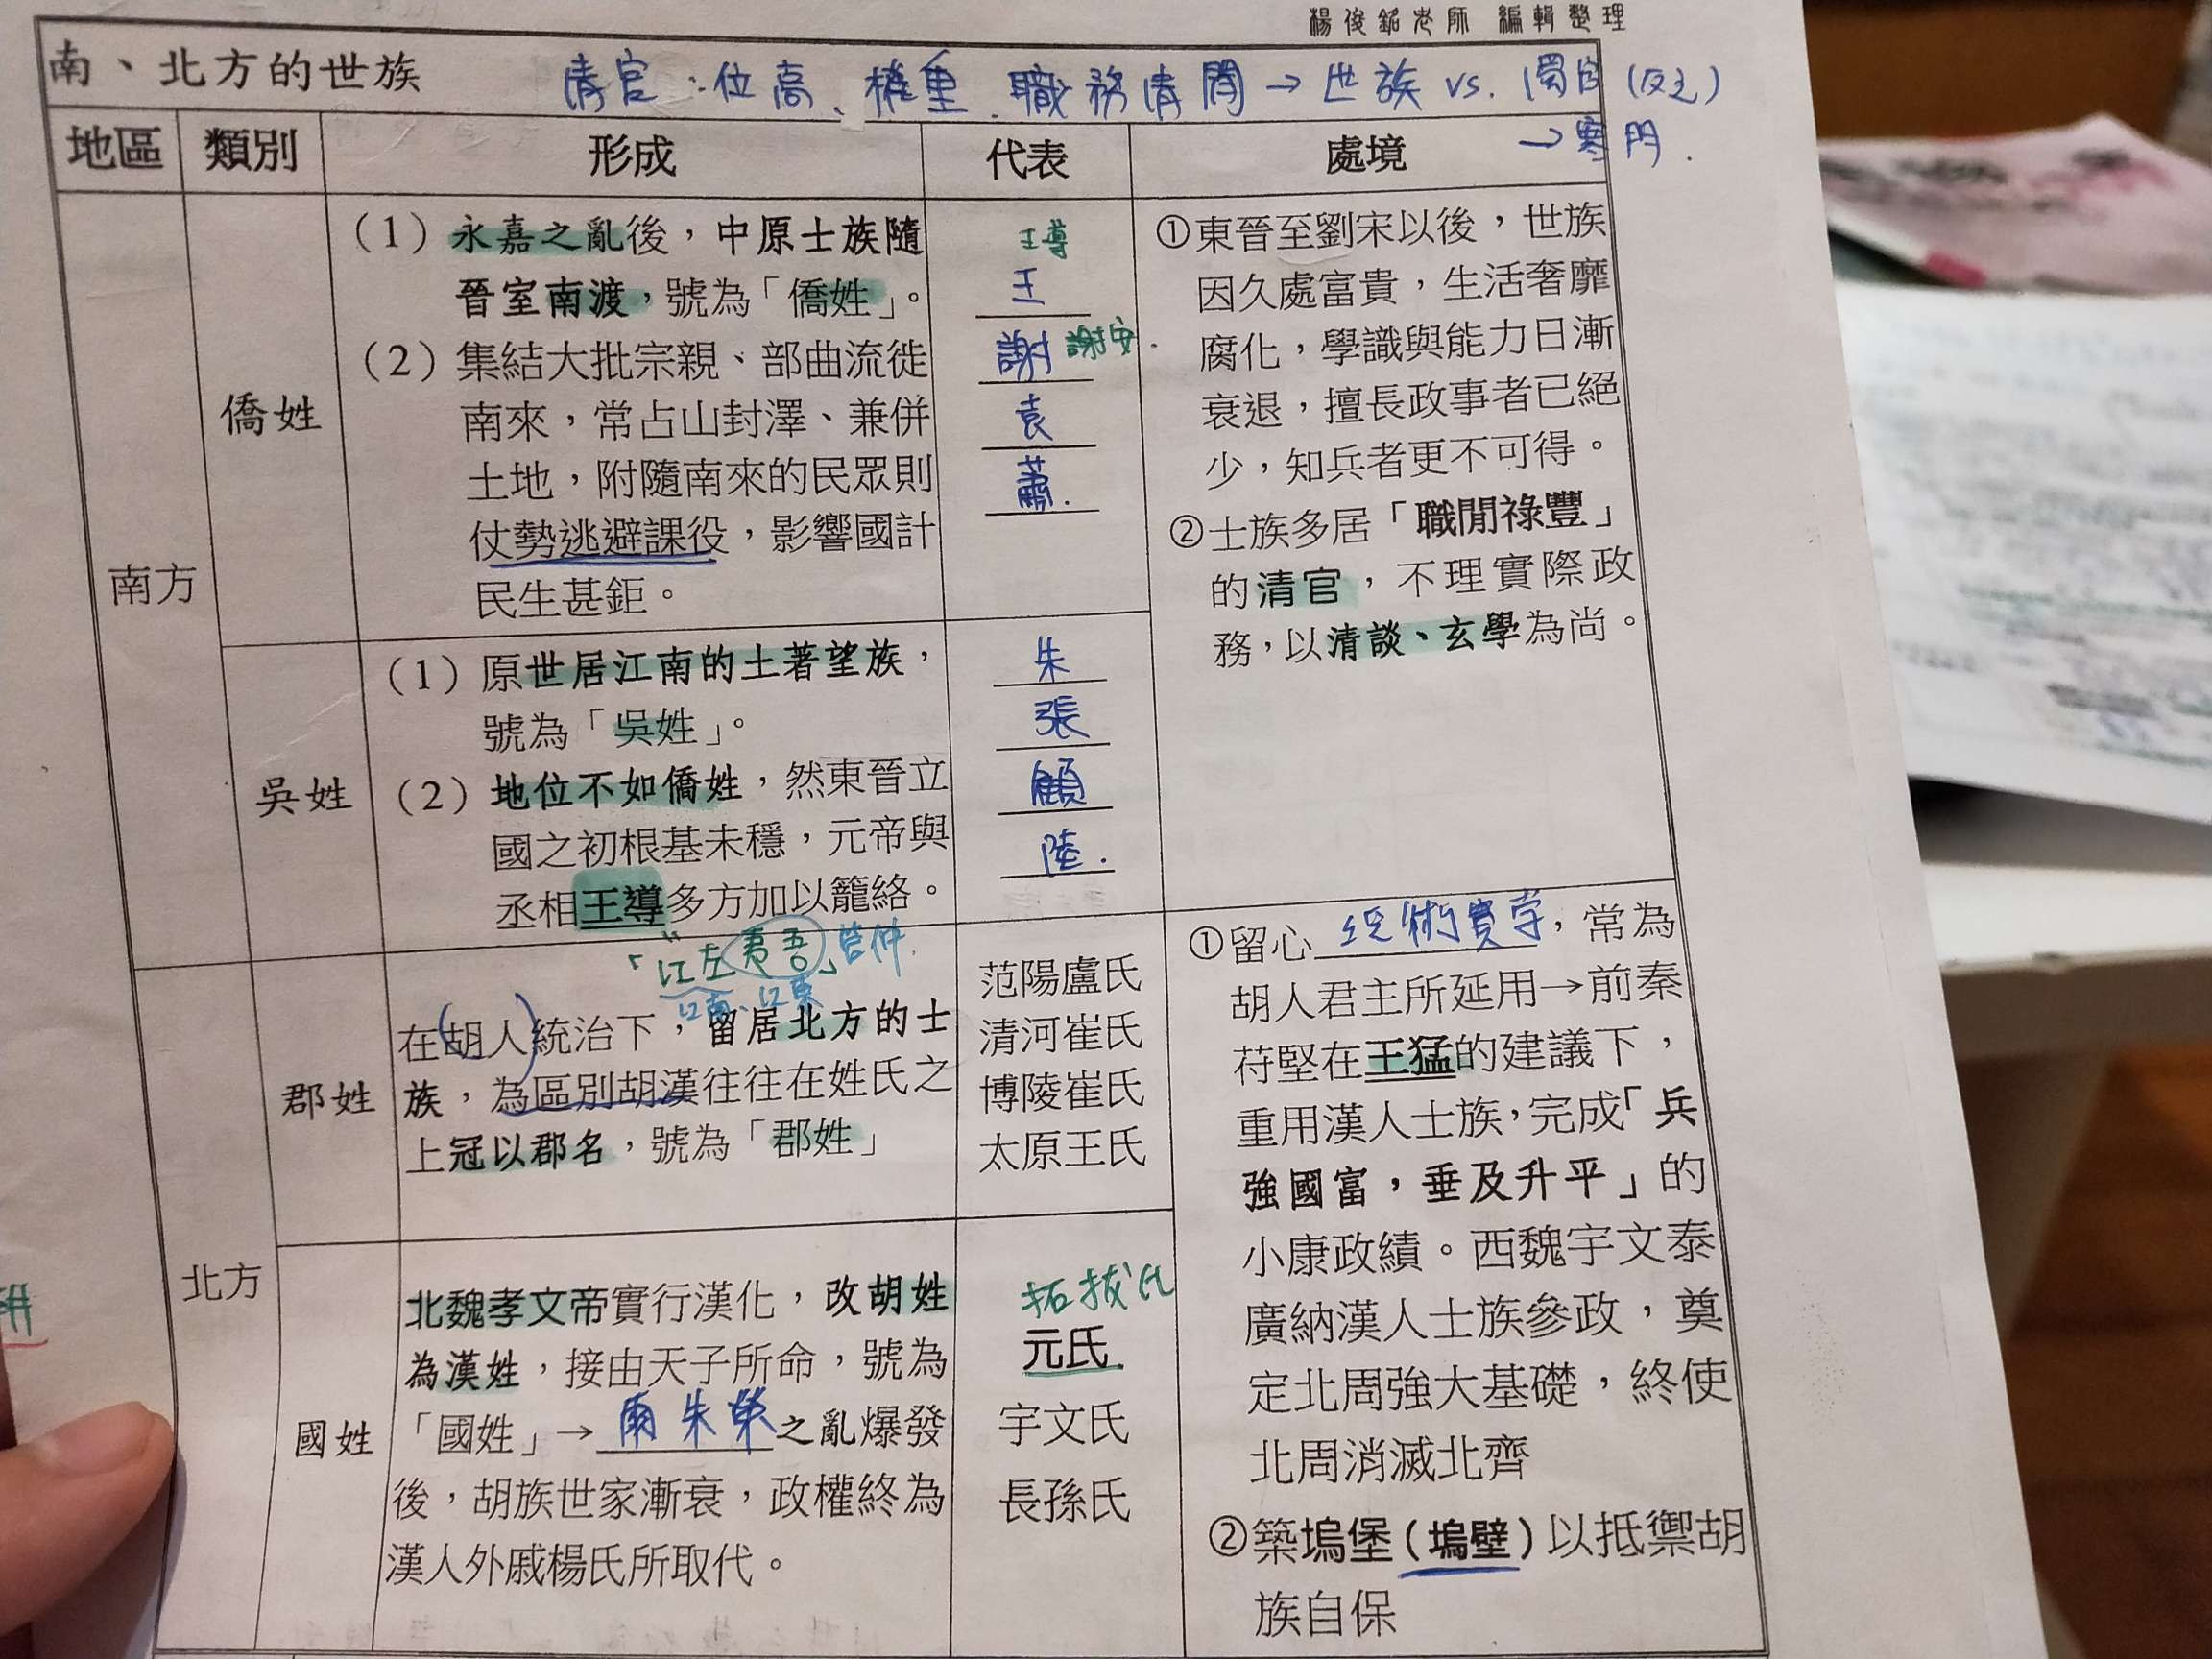 楊俊銘老師 編輯整理
南、北方的世族
清官:位高、權重、職務清閒→世族 vs. 濁官(反之)
→寒門.
地區
類別
形成
代表
處境
南方
僑姓
(1)永嘉之亂後,中原士族隨
晉室南渡,號為「僑姓」。
(2)集結大批宗親、部曲流徙
南來,常占山封澤、兼併
土地,附隨南來的民眾則
仗勢逃避課役,影響國計
民生甚鉅。
王導
王
謝 謝安.
袁
蕭.
①東晉至劉宋以後,世族
因久處富貴,生活奢靡
腐化,學識與能力日漸
衰退,擅長政事者已絕
少,知兵者更不可得。
②士族多居「職閒祿豐」
的清官,不理實際政
務,以清談、玄學為尚。
吳姓
(1)原世居江南的土著望族,
號為「吳姓」。
(2)地位不如僑姓,然東晉立
國之初根基未穩,元帝與
丞相王導多方加以籠絡。
「江左夷吾」管仲.
江南、江東
朱
張
顧
陸.
北方
郡姓
在(胡人)統治下,留居北方的士
族,為區別胡漢往往在姓氏之
上冠以郡名,號為「郡姓」
范陽盧氏
清河崔氏
博陵崔氏
太原王氏
①留心經術實学,常為
胡人君主所延用→前秦
苻堅在王猛的建議下,
重用漢人士族,完成「兵
強國富,垂及升平」的
小康政績。西魏宇文泰
廣納漢人士族參政,奠
定北周強大基礎,終使
北周消滅北齊
②築塢堡(塢壁)以抵禦胡
族自保
國姓
北魏孝文帝實行漢化,改胡姓
為漢姓,接由天子所命,號為
「國姓」→爾朱榮之亂爆發
後,胡族世家漸衰,政權終為
漢人外戚楊氏所取代。
拓拔氏
元氏.
宇文氏
長孫氏